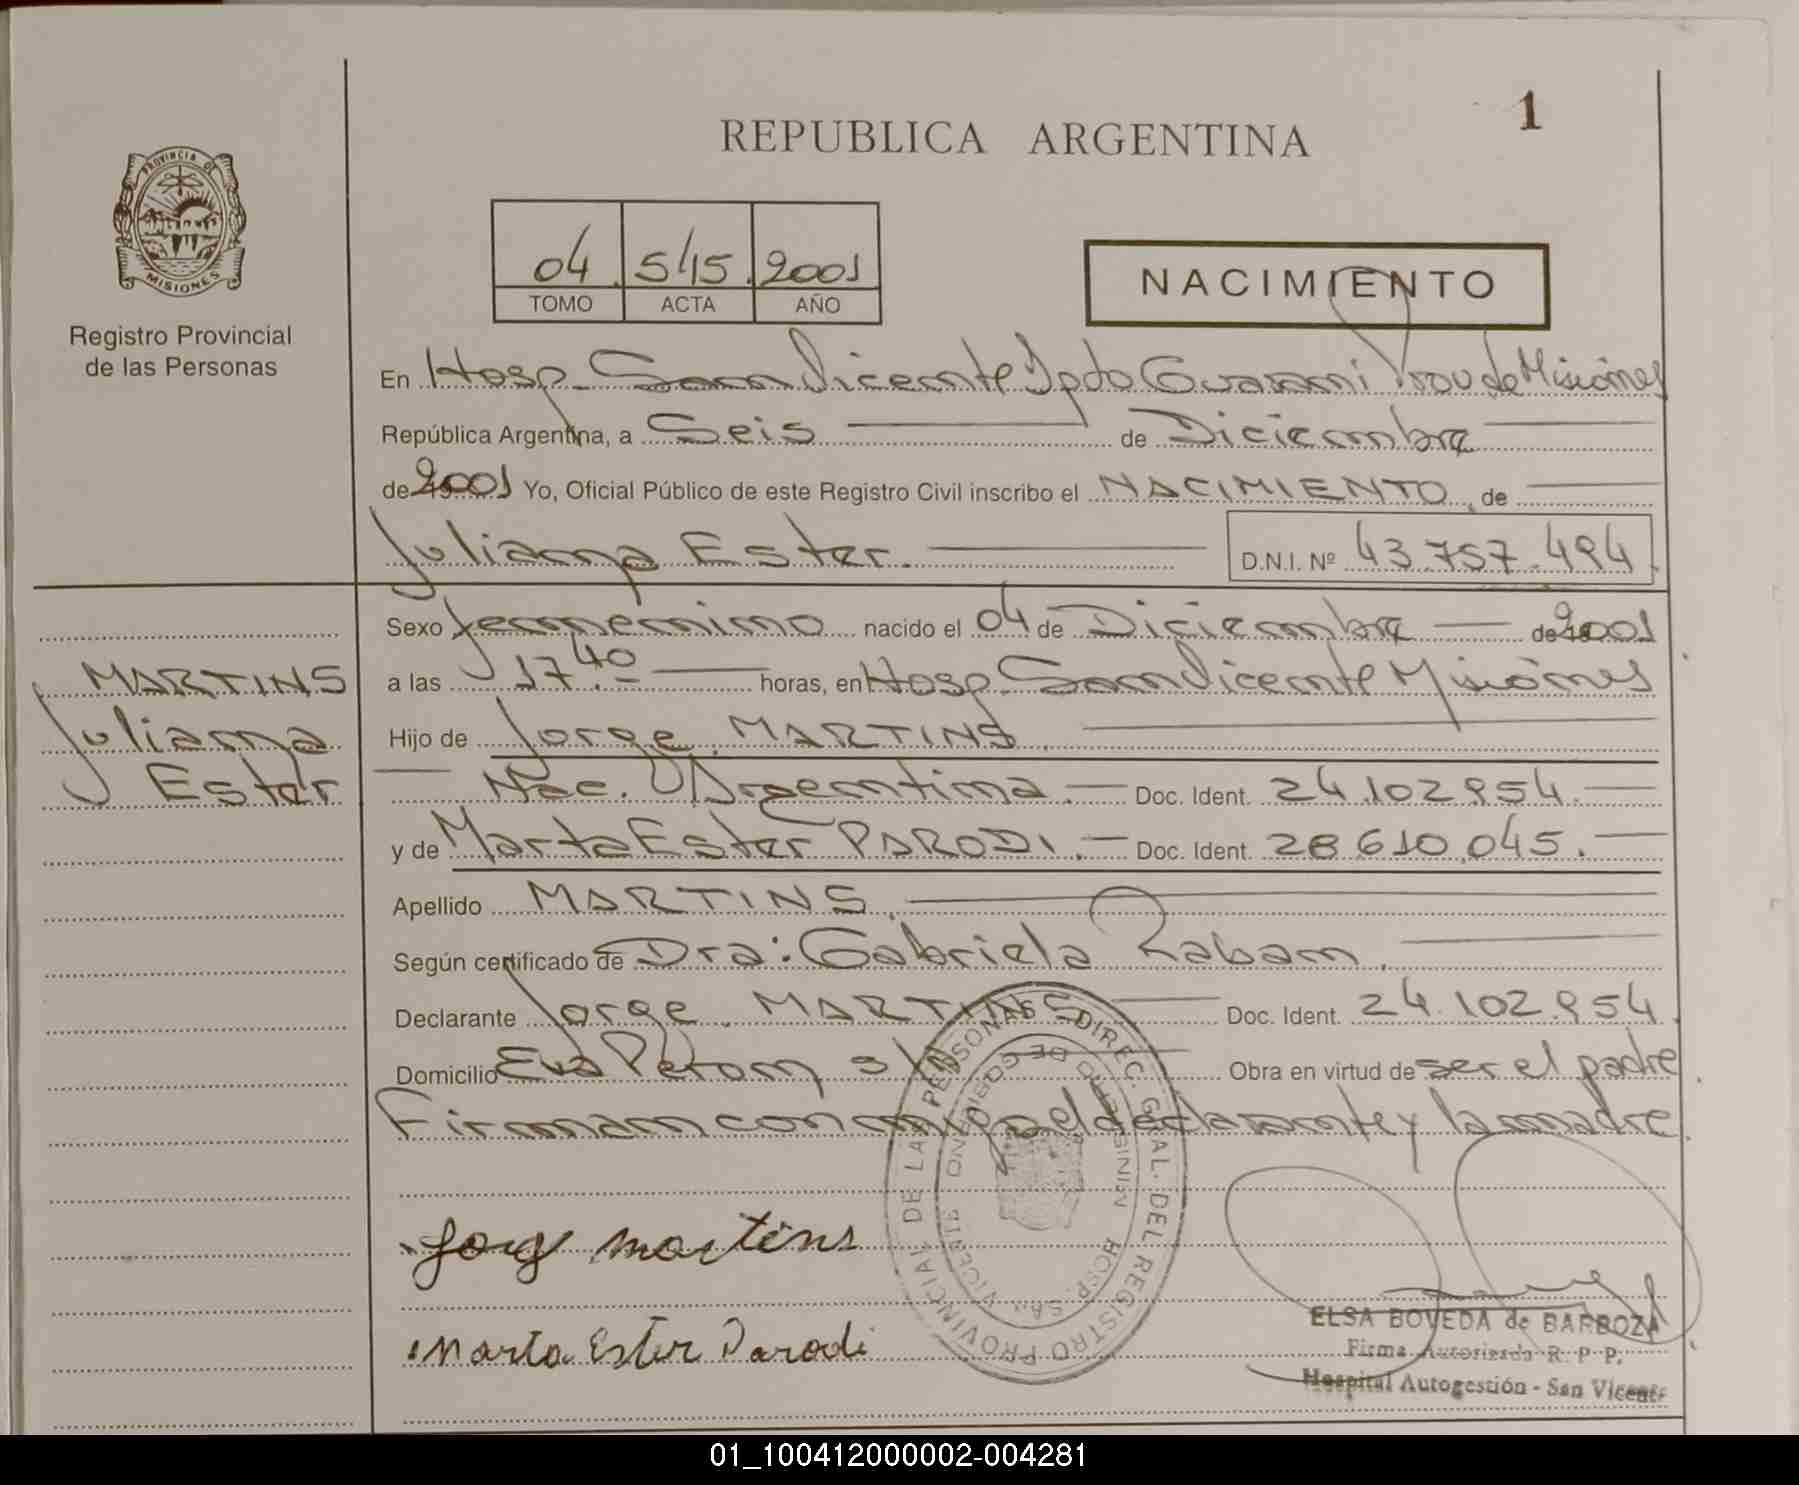 1
REPUBLICA ARGENTINA
PROVINCIA DE
MISIONES
Registro Provincial
de las Personas
04 545 2001
TOMO ACTA AÑO
NACIMIENTO
En Hosp. San Vicente Dpto Guarani Prov de Misiones
República Argentina, a Seis de Diciembre
de 2001 Yo, Oficial Público de este Registro Civil inscribo el NACIMIENTO, de
Juliana Ester. D.N.I. Nº 43.757.494
Sexo femenino nacido el 04 de Diciembre de 2001
a las 17.40 horas, en Hosp. San Vicente Misiones
MARTINS
Juliana
Ester
Hijo de Jorge MARTINS
Nac. Argentina. Doc. Ident. 24.102.954.
y de Marta Ester PARODI. Doc. Ident. 28.610.045.
Apellido MARTINS.
Según certificado de Dra: Gabriela Raban.
Declarante Jorge MARTINS Doc. Ident. 24.102.954
Domicilio Eva Peron s/n Obra en virtud de ser el padre
Firman conmigo el declarante y la madre.
Jorge martins
Marta Ester Parodi
REGISTRO PROVINCIAL DE LAS PERSONAS - DIREC. GRAL. DEL
HOSP. SA. VICENTE
ELSA BOVEDA de BARBOZA
Firma Autorizada R. P. P.
Hospital Autogestión - San Vicente
01_100412000002-004281